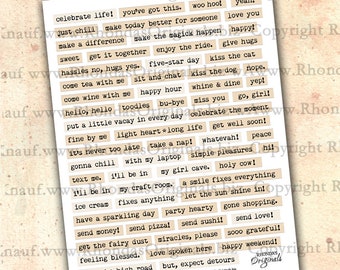 celebrate life! you've got this. woo hoo! yeah!
just chill make today better for someone love you
make a difference make the magick happen happy!
sweet get it together enjoy the ride. give hugs
hassles no, hugs yes. five-star day kiss the cat
come tea with me sit and chat kiss the dog hope.
come wine with me happy hour whine & dine yep!
hello, hello toodles bu-bye miss you go, girl!
put a little vacay in every day celebrate the moment
fine by me light heart • long life get well soon!
it's never too late. take a nap! hatevah! peace
gonna chill with my laptop simple pleasures nil
text me. i'll be in my girl cave. holy cow!
i'll be in my craft room. a smile fixes everything
ice cream fixes anything let the shenanigans begin!
have a sparkling day party hearty gone shopping.
send money! send pizza! send sushi! send love!
get the fairy dust miracles, please sooo grateful!
feeling blessed. love spoken here happy weekend!
high road but, expect detours
Rhondas Originals